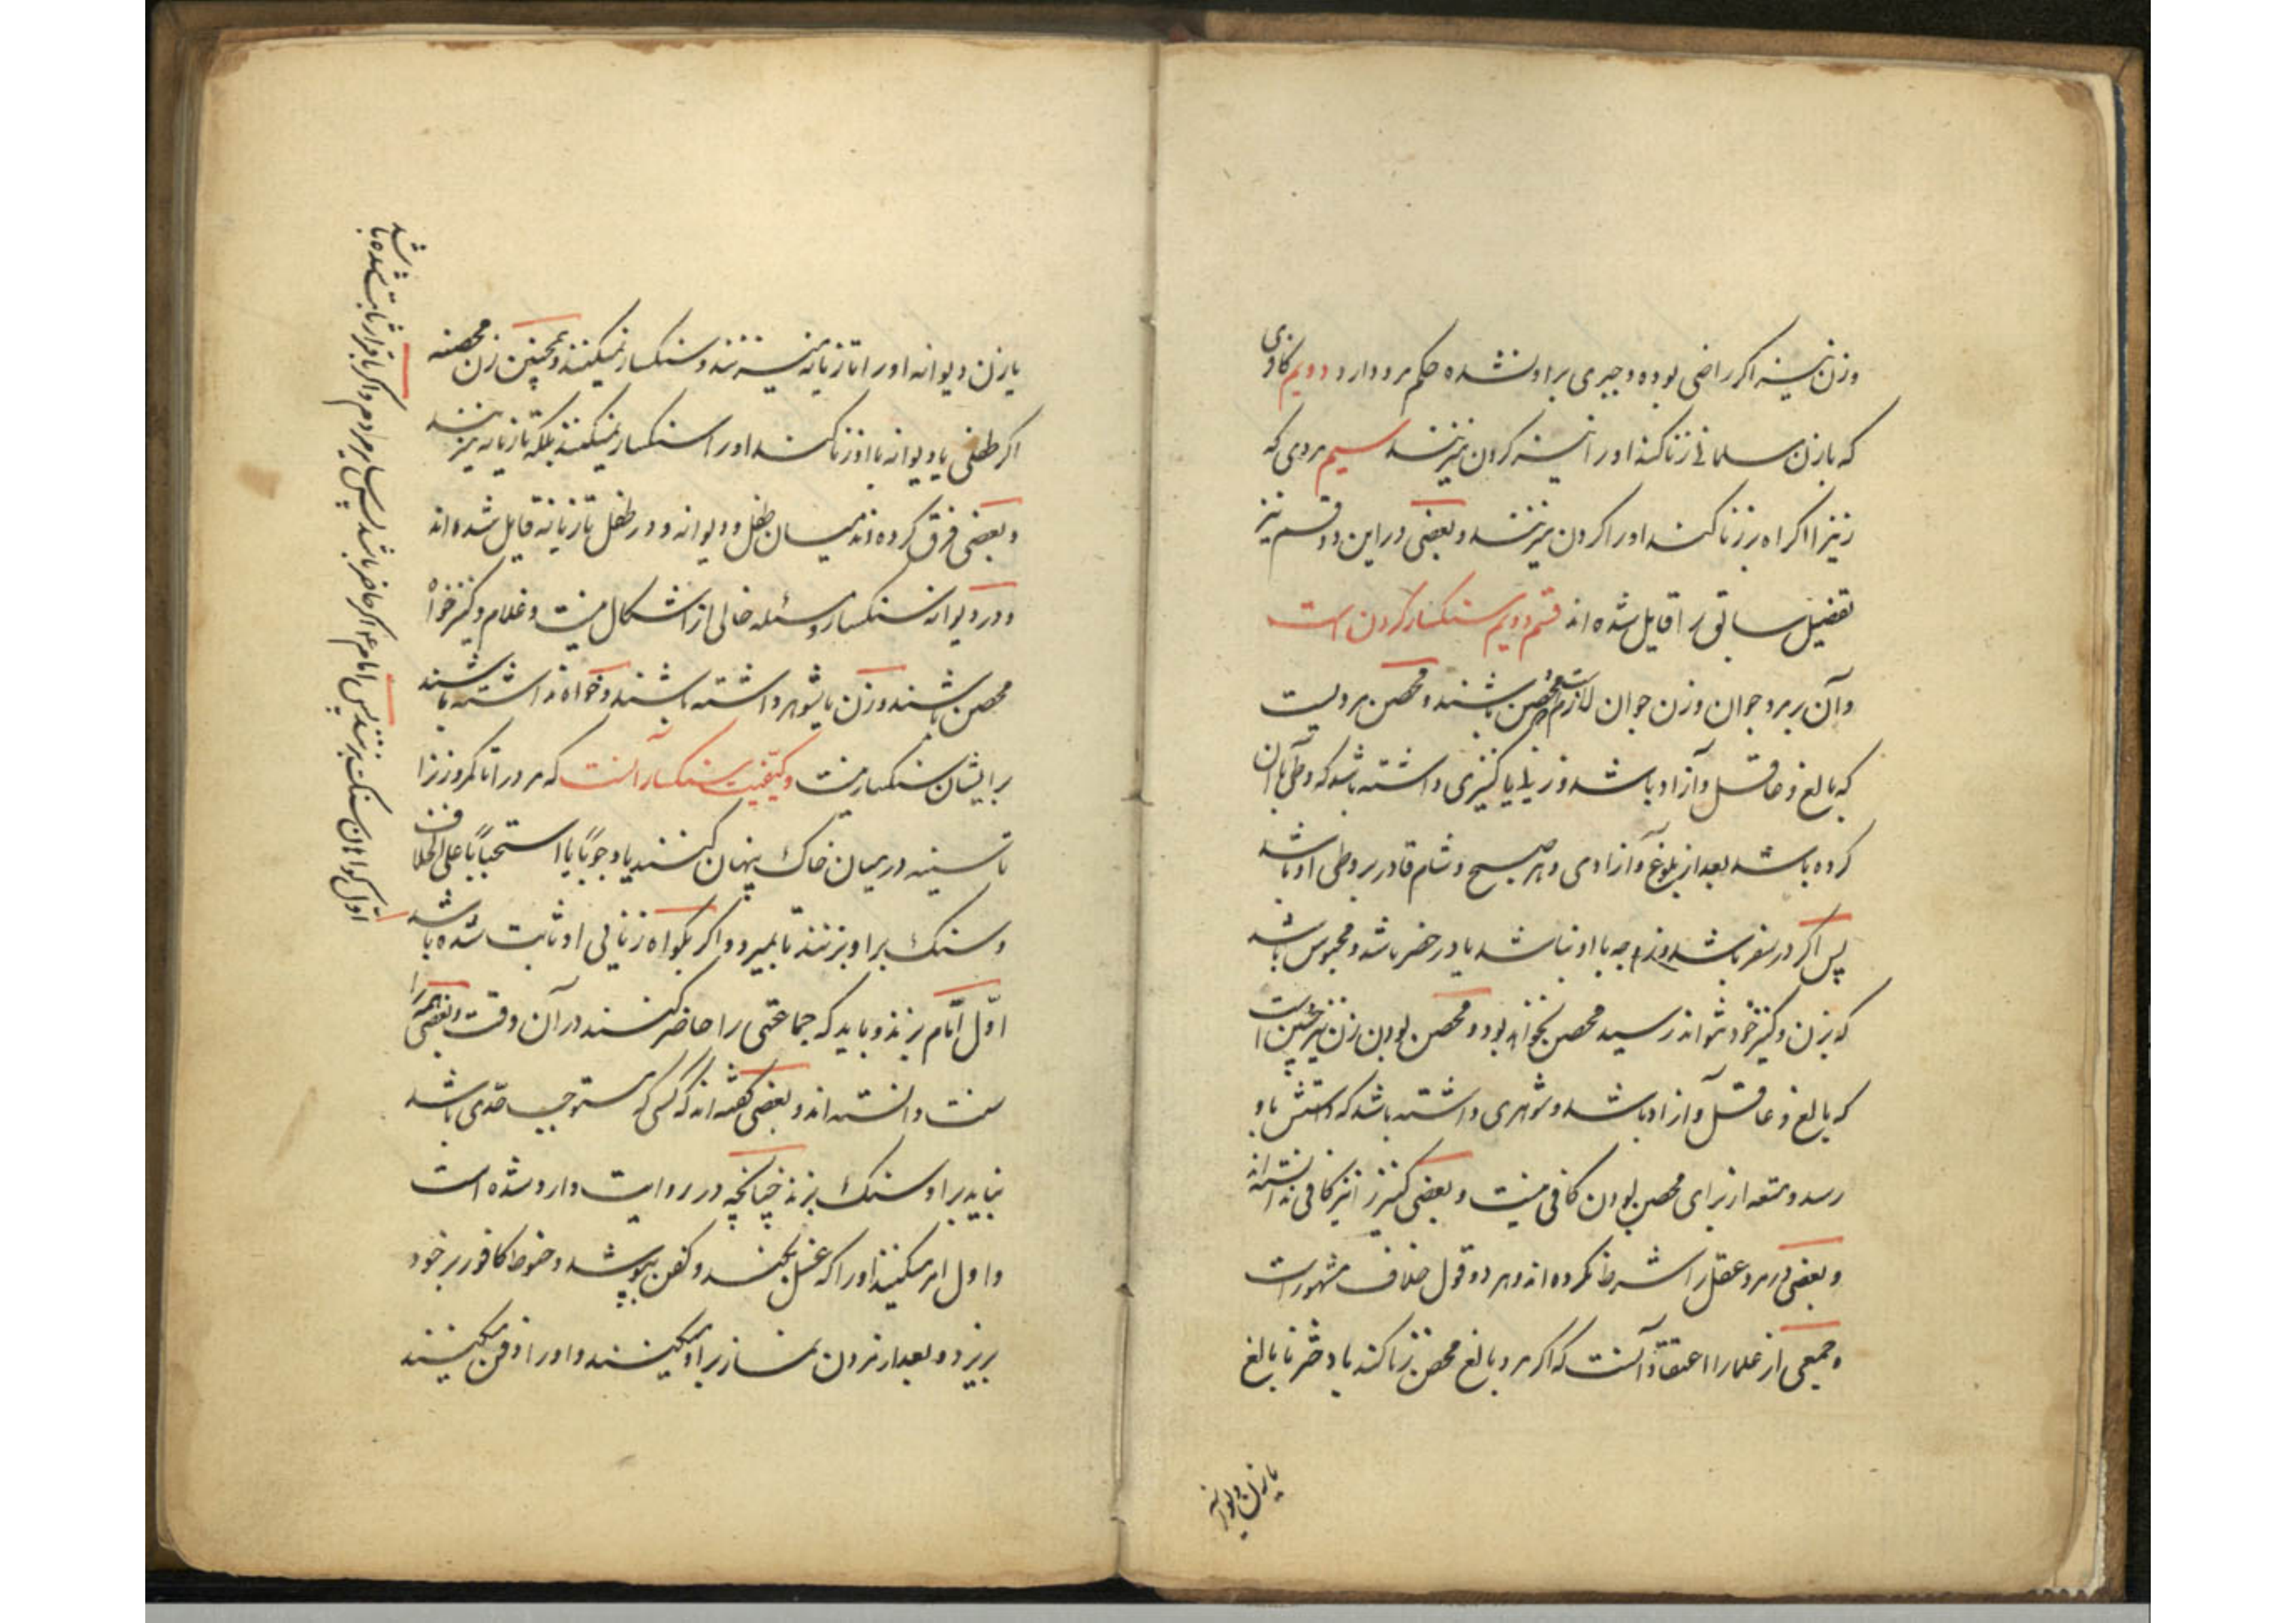 وزن نیز اگر راضی بوده و جبری بر او نشده حکم مرد دارد دویم کافری
که با زن مسلمانی زنا کند او را نیز گردن میزنند سیم مردی که
زنیرا اکراه بر زنا کند او را گردن میزنند و بعضی در این دو قسم نیز
تفصیل سابق را قایل شده اند قسم دویم سنگسار کردن است
و آن بر مرد جوان و زن جوان لازمست که محصن باشند و محصن مردیست
که بالغ و عاقل و آزاد باشد و زنی یا کنیزی داشته باشد که وطی با آن
کرده باشد بعد از بلوغ و آزادی و هر صبح و شام قادر بر وطی او باشد
پس اگر در سفر باشد و زوجه با او نباشد یا در حضر باشد و محبوس باشد
که بزن و کنیز خود نتواند رسید محصن نخواهد بود و محصن بودن زن نیز چنین است
که بالغ و عاقل و آزاد باشد و شوهری داشته باشد که دستش باو
رسد و متعه از برای محصن بودن کافی نیست و بعضی کنیز را نیز کافی ندانسته اند
و بعضی در مرد عقل را شرط نکرده اند و هر دو قول خلاف مشهور است
و جمعی از علما را اعتقاد آنست که اگر مرد بالغ محصن زنا کند با دختر نابالغ
یا زن دیوانه
یا زن دیوانه او را تازیانه میزنند و سنگسار نمیکنند و همچنین زن محصنه
اگر طفلی یا دیوانه با او زنا کند او را سنگسار نمیکنند بلکه تازیانه میزنند
و بعضی فرق کرده اند میان طفل و دیوانه و در طفل تازیانه قایل شده اند
و در دیوانه سنگسار و مسئله خالی از اشکال نیست و غلام و کنیز خواه
محصن باشند و زن یا شوهر داشته باشند و خواه نداشته باشند
بر ایشان سنگسار نیست و کیفیت سنگسار آنست که مرد را تا کمر و زنرا
تا سینه در میان خاک پنهان کنند یا وجوباً یا استحباباً علی الخلاف
و سنگ بر او بزنند تا بمیرد و اگر بگواه زنای او ثابت شده باشد
اول امام بزند و باید که جماعتی را حاضر کنند در آن وقت و بعضی همه را
سنت دانسته اند و بعضی گفته اند که کسی که مستوجب حدی باشد
نباید بر او سنگ بزند چنانچه در روایت وارد شده است
و اول امر میکنند او را که غسل بکند و کفن بپوشد و حنوط کافور بر خود
بریزد و بعد از مردن نماز بر او میکنند و او را دفن میکنند
اول گواهان سنگ بزنند پس امام ع اگر حاضر باشد پس سایر مردم و اگر باقرار ثابت شده باشد